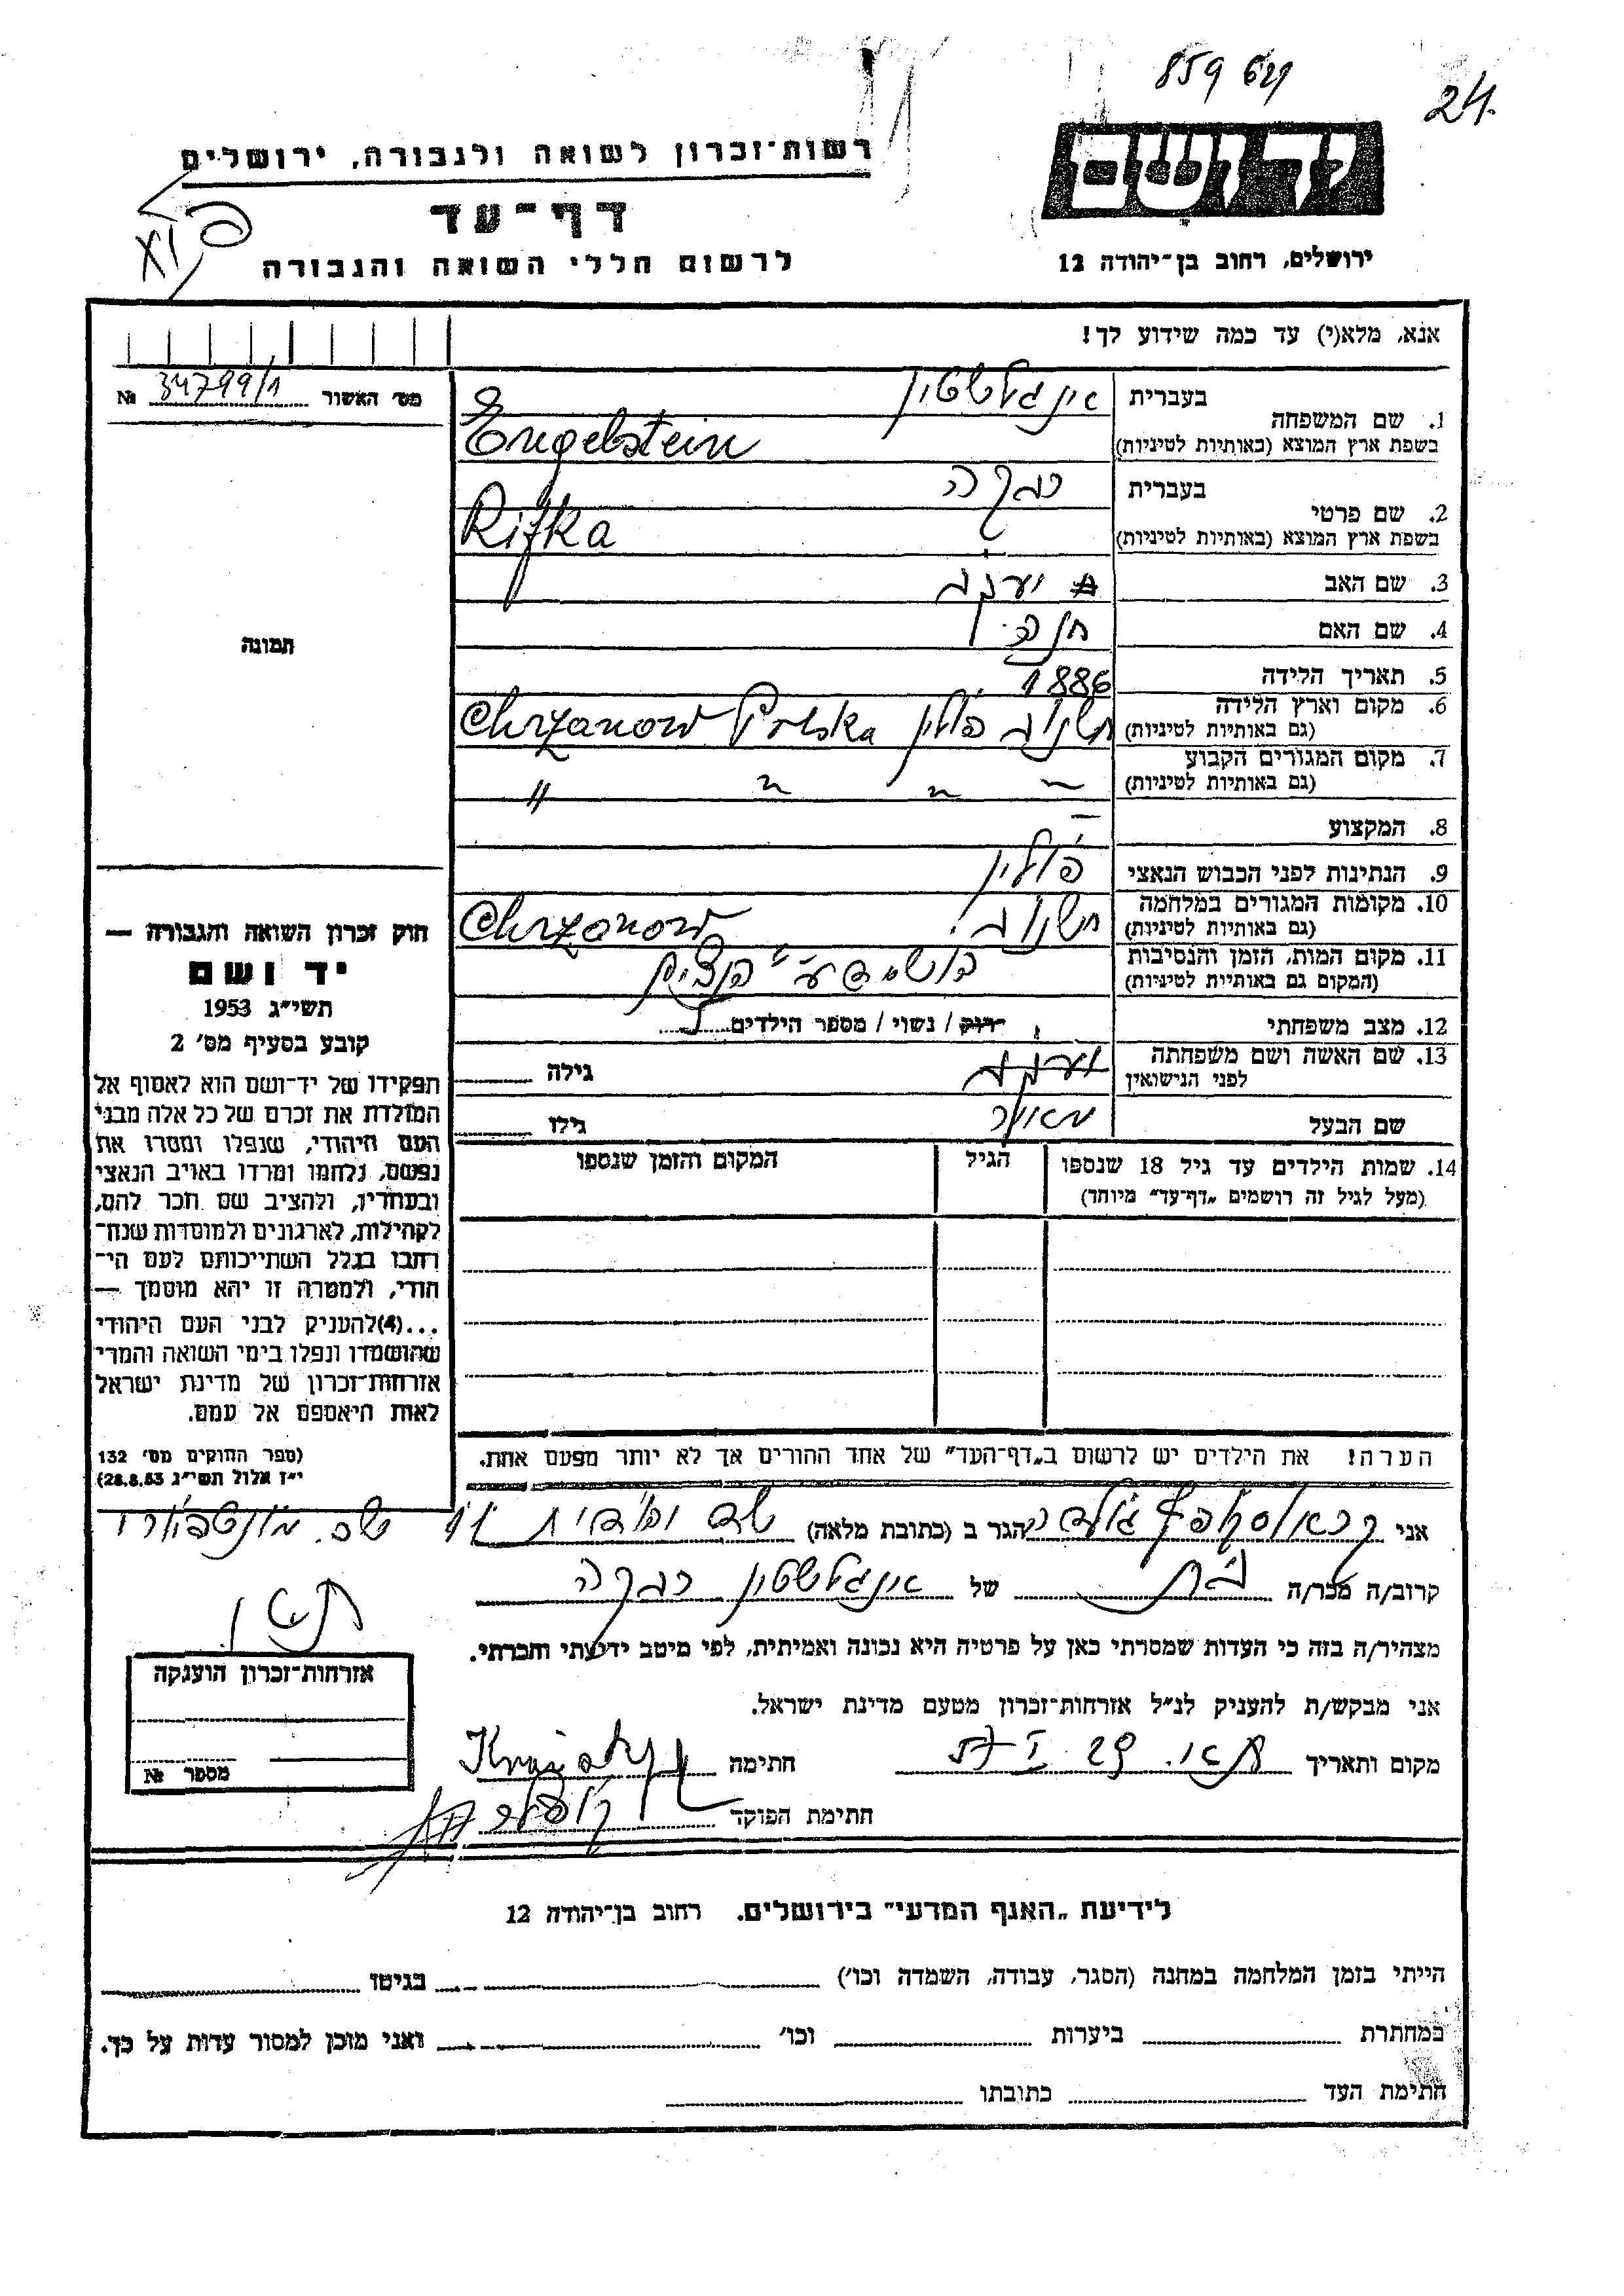 859
24
יד ושם
רשות־זכרון לשואה ולגבורה, ירושלים
דף־עד
לרשום חללי השואה והגבורה
ירושלים, רחוב בן־יהודה 12
אנא, מלא(י) עד כמה שידוע לך!
מס׳ האשור 34799/1 №
1. שם המשפחה
בעברית אינגלשטיין
בשפת ארץ המוצא (באותיות לטיניות) Engelstein
2. שם פרטי
בעברית רבקה
בשפת ארץ המוצא (באותיות לטיניות) Rifka
3. שם האב יעקב
4. שם האם חנה
5. תאריך הלידה 1886
6. מקום וארץ הלידה (גם באותיות לטיניות) חשנוב פולין Chrzanow Polska
7. מקום המגורים הקבוע (גם באותיות לטיניות) " " " "
8. המקצוע —
9. הנתינות לפני הכבוש הנאצי פולין
10. מקומות המגורים במלחמה (גם באותיות לטיניות) חשנוב Chrzanow
11. מקום המות, הזמן והנסיבות (המקום גם באותיות לטיניות) הושמד ע״י הנצים
12. מצב משפחתי רווק / נשוי / מספר הילדים
13. שם האשה ושם משפחתה לפני הנישואין יעקב גילה
שם הבעל מאיר גילו
14. שמות הילדים עד גיל 18 שנספו (מעל לגיל זה רושמים „דף־עד״ מיוחד)
הגיל
המקום והזמן שנספו
הערה! את הילדים יש לרשום ב„דף־העד״ של אחד ההורים אך לא יותר מפעם אחת.
תמונה
חוק זכרון השואה והגבורה —
יד ושם
תשי״ג 1953
קובע בסעיף מס׳ 2
תפקידו של יד־ושם הוא לאסוף אל
המולדת את זכרם של כל אלה מבני
העם היהודי, שנפלו ומסרו את
נפשם, נלחמו ומרדו באויב הנאצי
ובעוזריו, ולהציב שם וזכר להם,
לקהילות, לארגונים ולמוסדות שנח־
רבו בגלל השתייכותם לעם הי־
הודי, ולמטרה זו יהא מוסמך —
...(4)להעניק לבני העם היהודי
שהושמדו ונפלו בימי השואה והמרי
אזרחות־זכרון של מדינת ישראל
לאות היאספם אל עמם.
(ספר החוקים מס׳ 132
י״ז אלול תשי״ג 28.8.53)
אני הגר ב (כתובת מלאה)
קרוב/ה מכר/ה בת של אינגלשטיין רבקה
מצהיר/ה בזה כי העדות שמסרתי כאן על פרטיה היא נכונה ואמיתית, לפי מיטב ידיעתי והכרתי.
אני מבקש/ת להעניק לנ״ל אזרחות־זכרון מטעם מדינת ישראל.
מקום ותאריך חתימה
חתימת הפוקד
אזרחות־זכרון הוענקה
מספר №
לידיעת „האגף המדעי״ בירושלים. רחוב בן־יהודה 12
הייתי בזמן המלחמה במחנה (הסגר, עבודה, השמדה וכו׳) בגיטו
במחתרת ביערות וכו׳ ואני מוכן למסור עדות על כך.
חתימת העד כתובתו